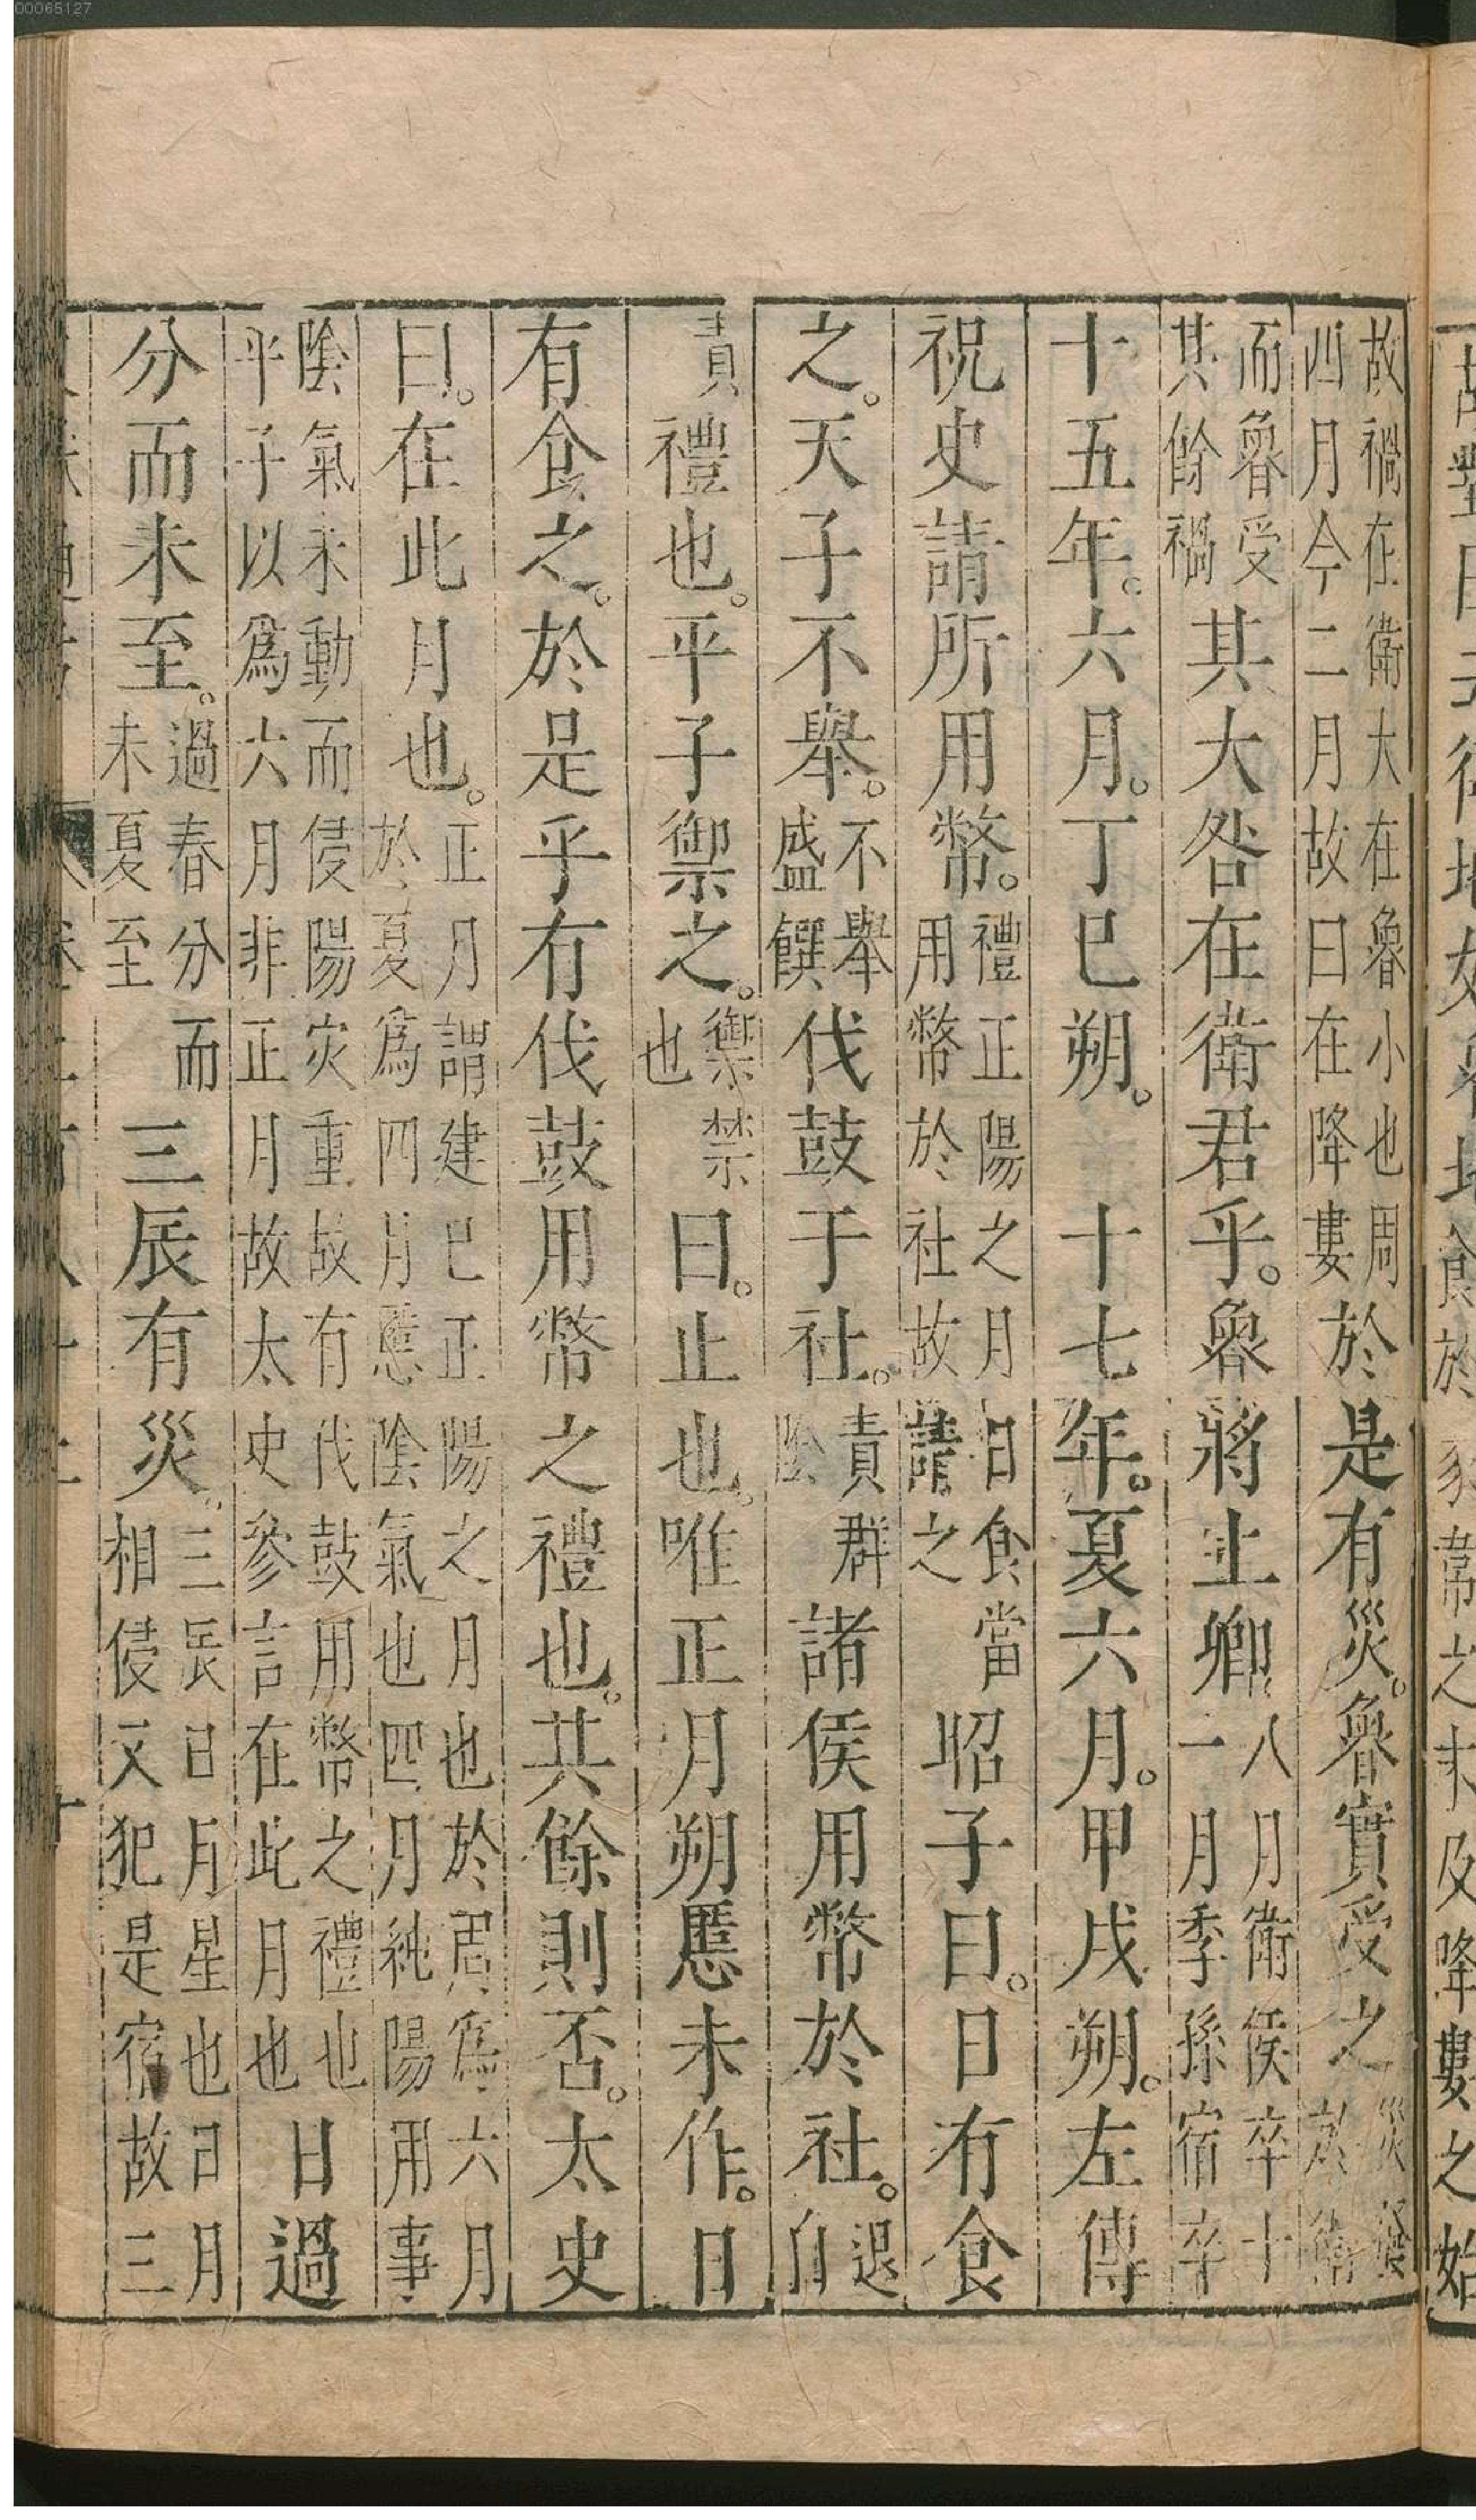 於豕韋之末及降婁之始
故禍在衛大在魯小也周四月今二月故曰在降婁於是有災。魯實受之災發於衛
而魯受其餘禍其大咎在衛君乎。魯將上卿八月衛侯卒十一月季孫宿卒
十五年。六月。丁巳朔。 十七年。夏六月。甲戌朔。左傳
祝史請所用幣。禮正陽之月日食當用幣於社故請之昭子曰。日有食
之。天子不舉。不舉盛饌伐鼓于社。責群陰諸侯用幣於社。退自
責禮也。平子禦之。禦禁也曰。止也。唯正月朔慝未作。日
有食之。於是乎有伐鼓用幣之禮也。其餘則否。太史
曰。在此月也。正月謂建巳正陽之月也於周爲六月於夏爲四月慝陰氣也四月純陽用事
陰氣未動而侵陽灾重故有伐鼓用幣之禮也平子以爲六月非正月故太史參言在此月也日過
分而未至。過春分而未夏至三辰有災。三辰日月星也日月相侵又犯是宿故三
00065127